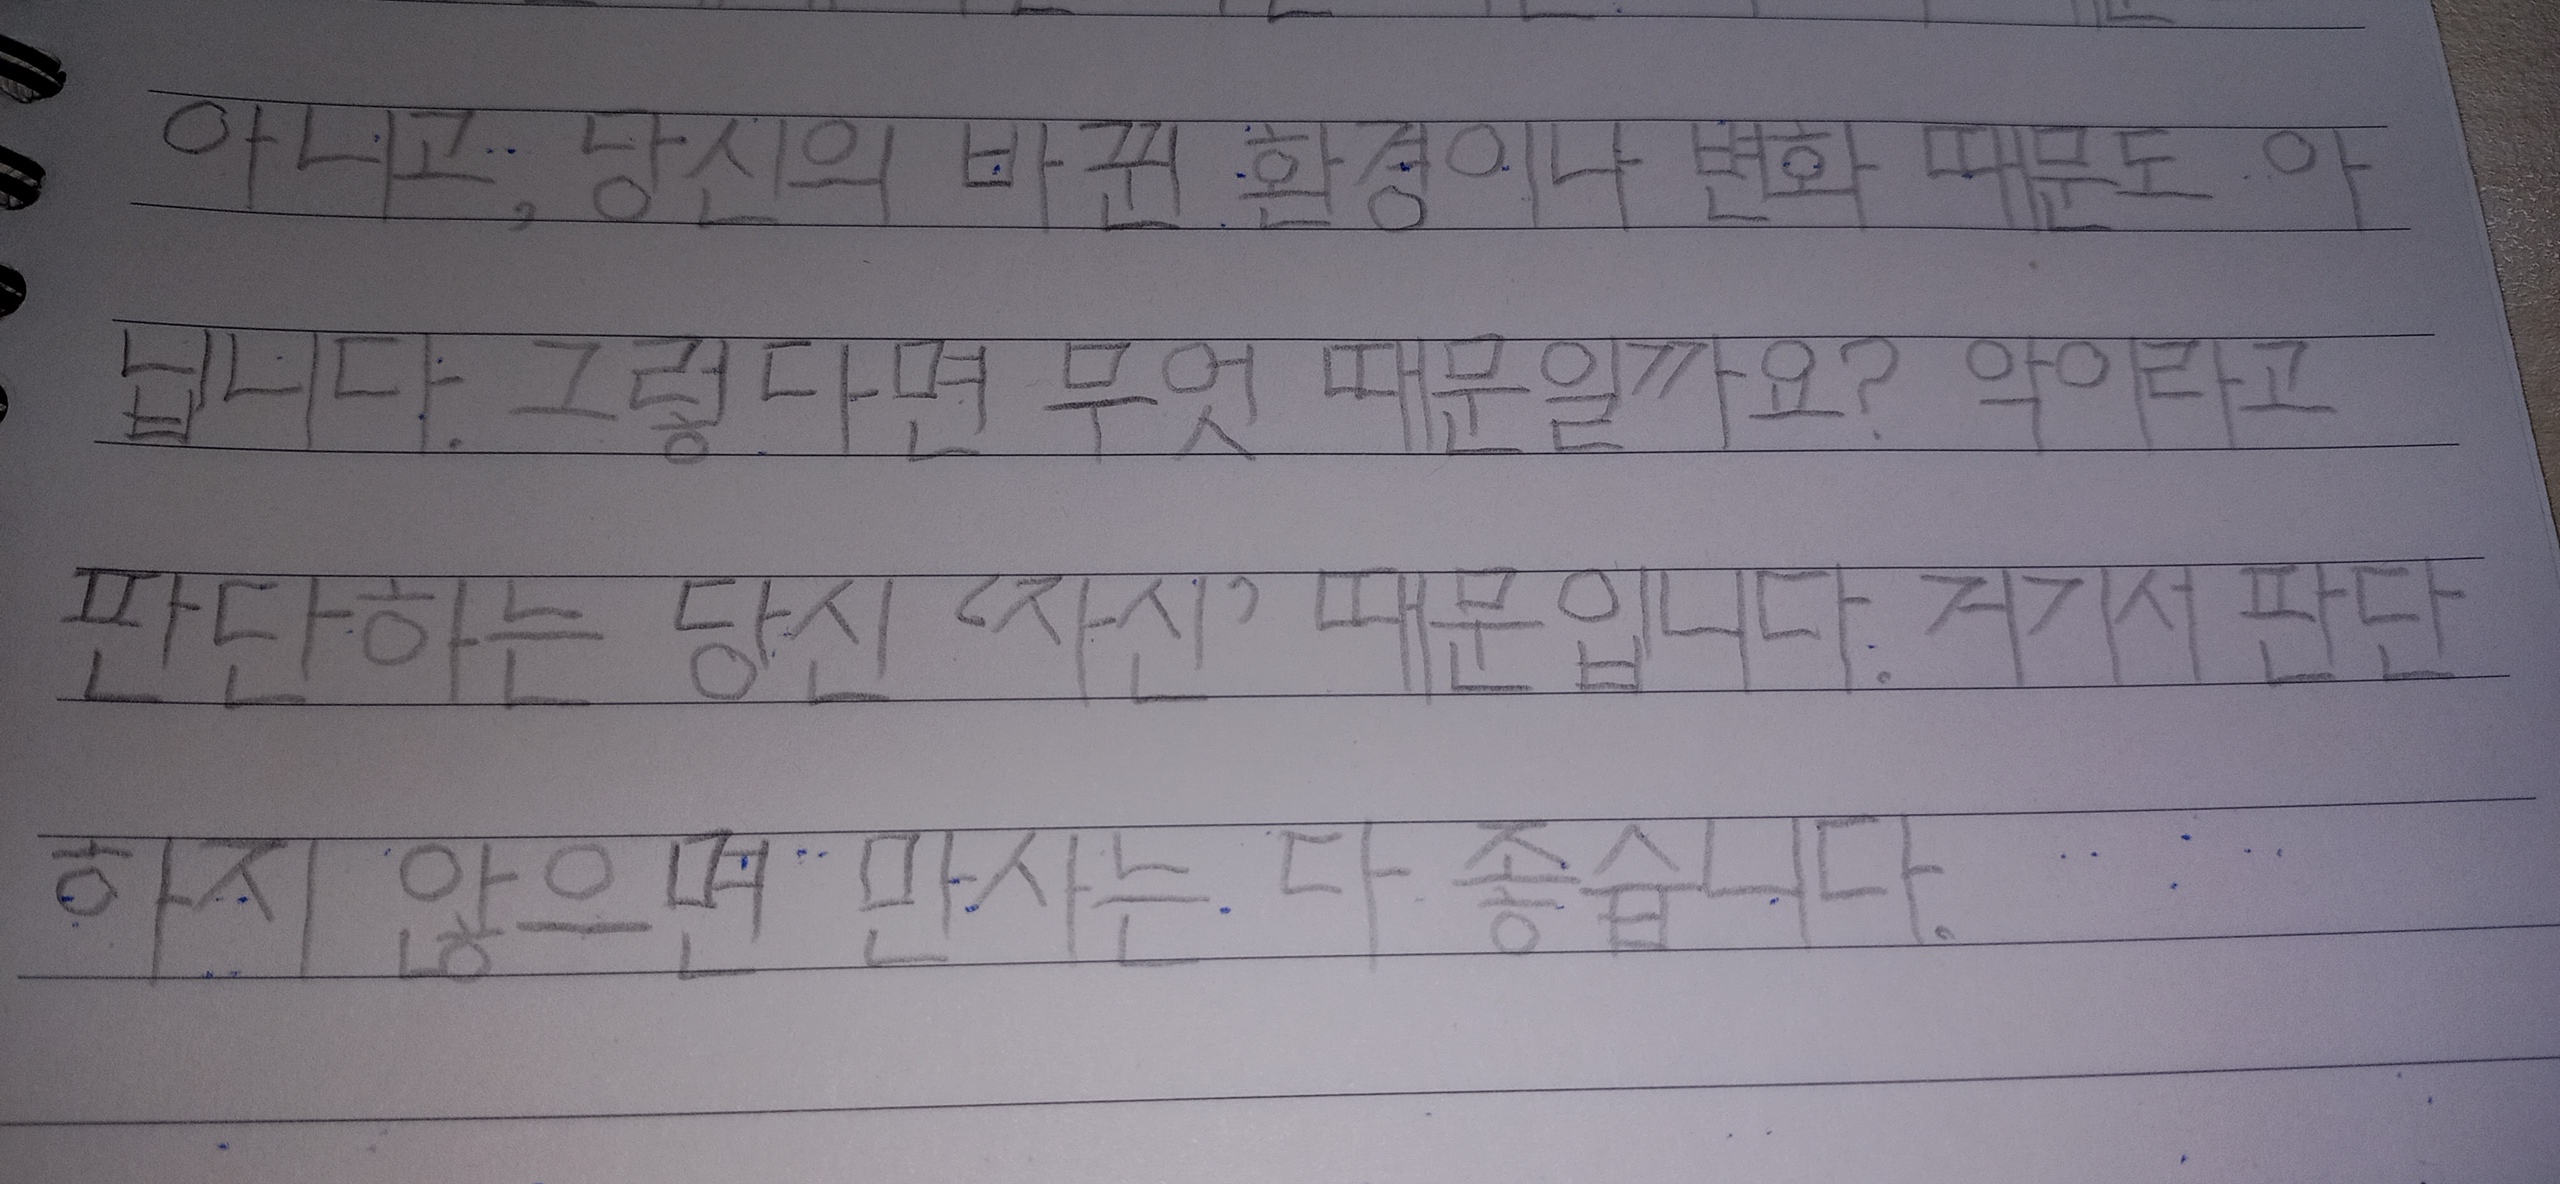 아니고, 당신의 바뀐 환경이나 변화 때문도 아
닙니다. 그렇다면 무엇 때문일까요? 악이라고
판단하는 당신 '자신' 때문입니다. 거기서 판단
하지 않으면 만사는 다 좋습니다.